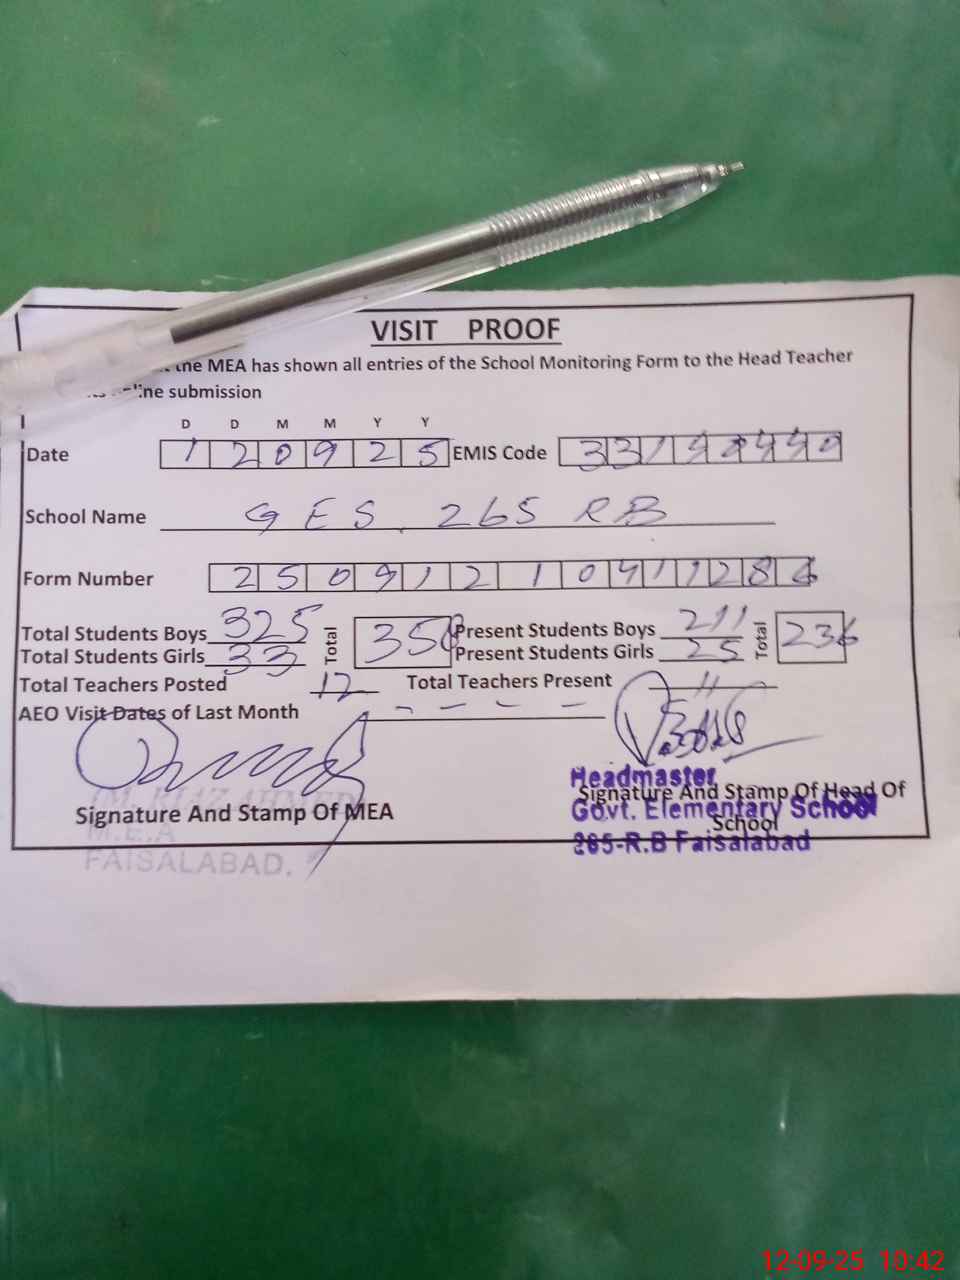 VISIT PROOF
the MEA has shown all entries of the School Monitoring Form to the Head Teacher
submission
D D M M Y Y
Date 1 2 0 9 2 5 EMIS Code
School Name GES 265 RB
Form Number 2 5 0 9 1 2 1 0 4 1 1 2 8 6
Total Students Boys 325 Total 358 Present Students Boys 211 Total 236
Total Students Girls 33 Present Students Girls 25
Total Teachers Posted 12 Total Teachers Present 11
AEO Visit Dates of Last Month - - - -
Headmaster
Signature And Stamp Of Head Of
School
Govt. Elementary School
265-R.B Faisalabad
Signature And Stamp Of MEA
M. RIAZ AHMED
M.E.A
FAISALABAD.
12-09-25 10:42